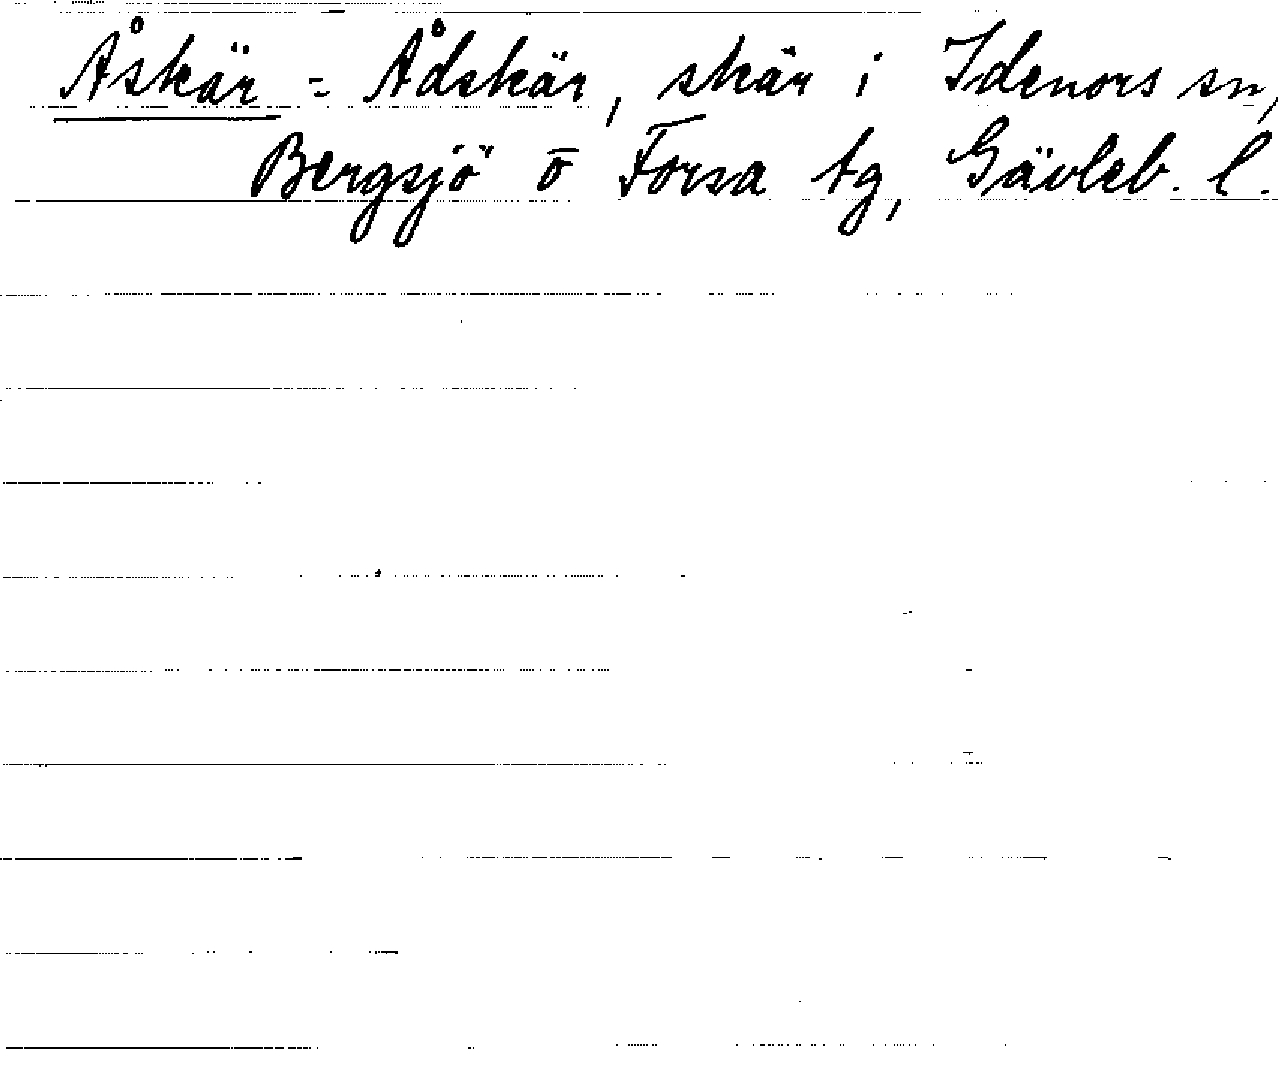 Åskär = Ådskär, skär i Idenors sn,
Bergsjö o Forsa tg, Gävleb. l.